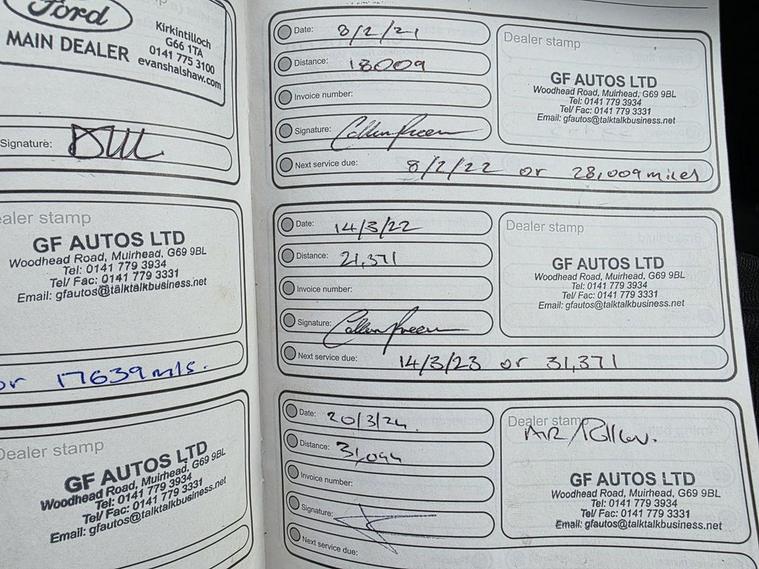 Ford
Kirkintilloch
G66 1TA
0141 775 3100
evanshalshaw.com
MAIN DEALER
Signature:
ealer stamp
GF AUTOS LTD
Woodhead Road, Muirhead, G69 9BL
Tel: 0141 779 3934
Tel/ Fax: 0141 779 3331
Email: gfautos@talktalkbusiness.net
or 17639 mls.
Dealer stamp
GF AUTOS LTD
Woodhead Road, Muirhead, G69 9BL
Tel: 0141 779 3934
Tel/ Fax: 0141 779 3331
Email: gfautos@talktalkbusiness.net
Date: 8/2/21
Distance: 18009
Invoice number:
Signature:
Next service due: 8/2/22 or 28,009 miles
Dealer stamp
GF AUTOS LTD
Woodhead Road, Muirhead, G69 9BL
Tel: 0141 779 3934
Tel/ Fax: 0141 779 3331
Email: gfautos@talktalkbusiness.net
Date: 14/3/22
Distance: 21,371
Invoice number:
Signature:
Next service due: 14/3/23 or 31,371
Dealer stamp
GF AUTOS LTD
Woodhead Road, Muirhead, G69 9BL
Tel: 0141 779 3934
Tel/ Fax: 0141 779 3331
Email: gfautos@talktalkbusiness.net
Date: 20/3/24.
Distance: 31,044
Invoice number:
Signature:
Next service due:
Dealer stamp
GF AUTOS LTD
Woodhead Road, Muirhead, G69 9BL
Tel: 0141 779 3934
Tel/ Fax: 0141 779 3331
Email: gfautos@talktalkbusiness.net